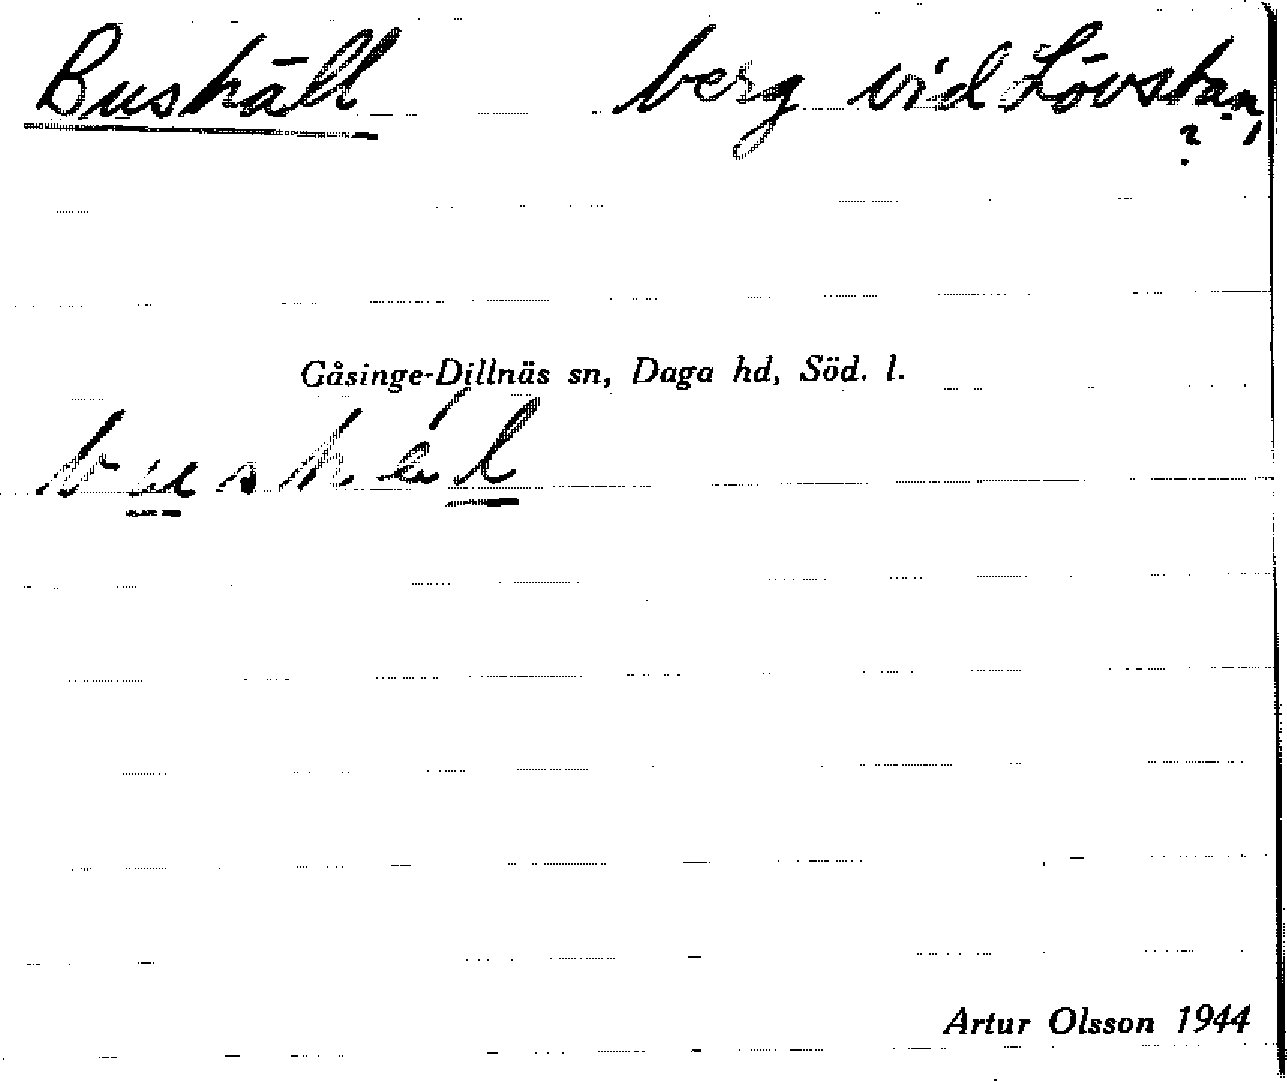 Bushäll berg vid Lövstan,
?
Gåsinge-Dillnäs sn, Daga hd, Söd. l.
Artur Olsson 1944